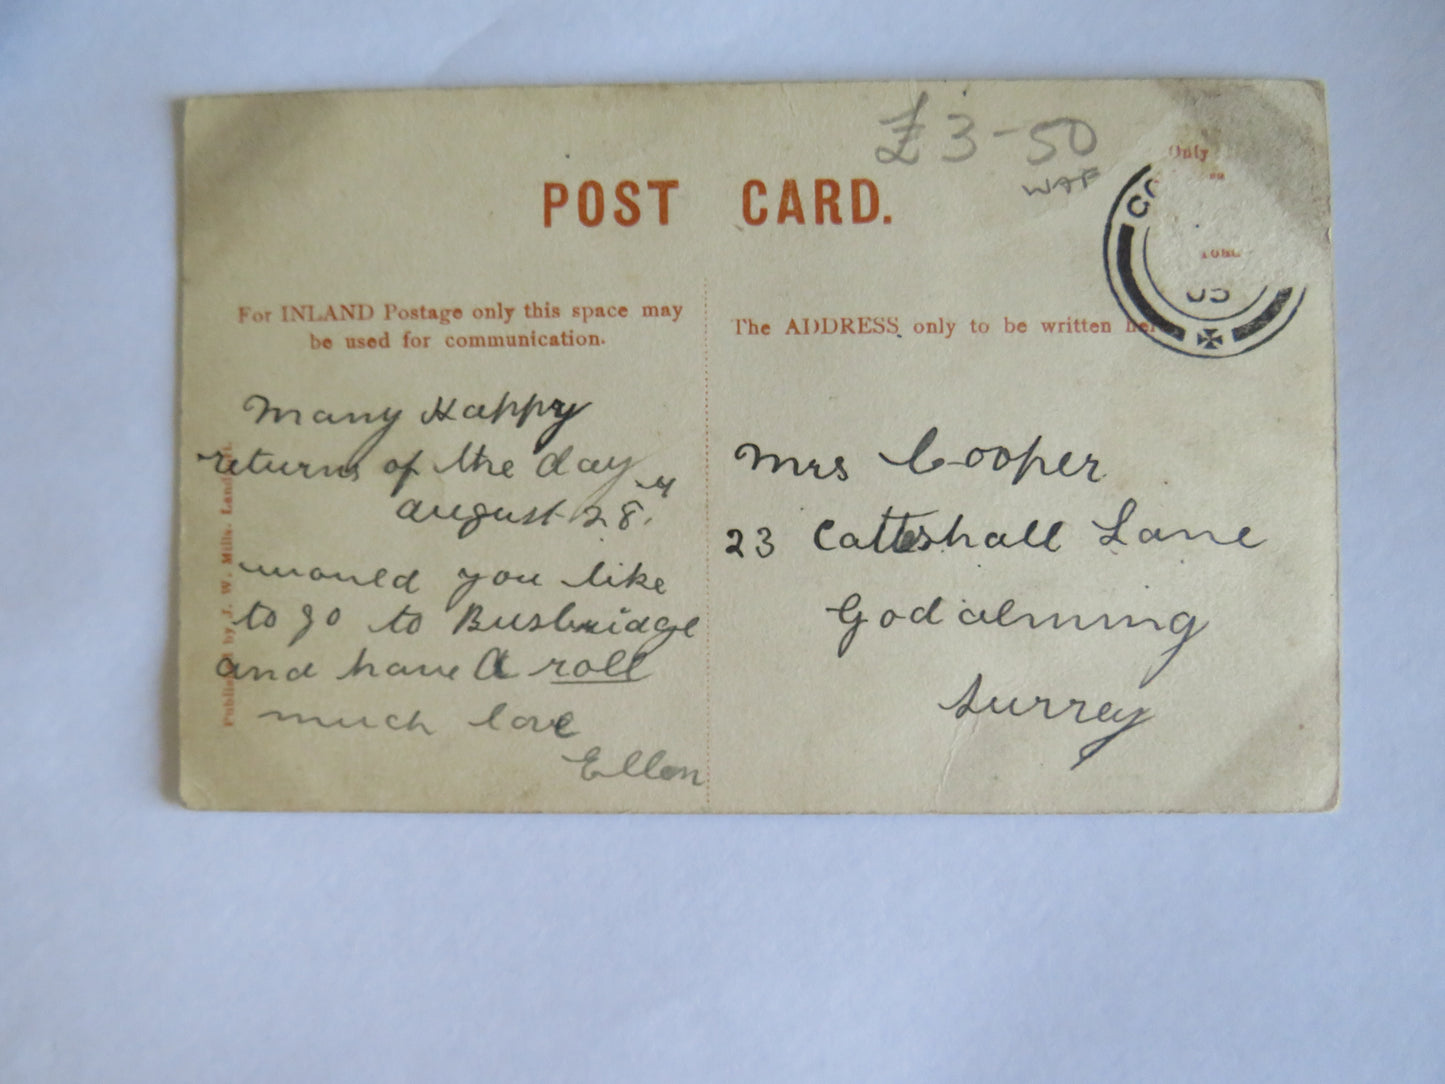 £3-50
WAF
POST CARD.
Only
05
For INLAND Postage only this space may
be used for communication.
The ADDRESS only to be written
Many Happy
returns of the day
august 28th
would you like
to go to Busbridge
and have A roll
much love
Ellen
Mrs Cooper
23 Catteshall Lane
Godalming
Surrey
by J. W. Mills.